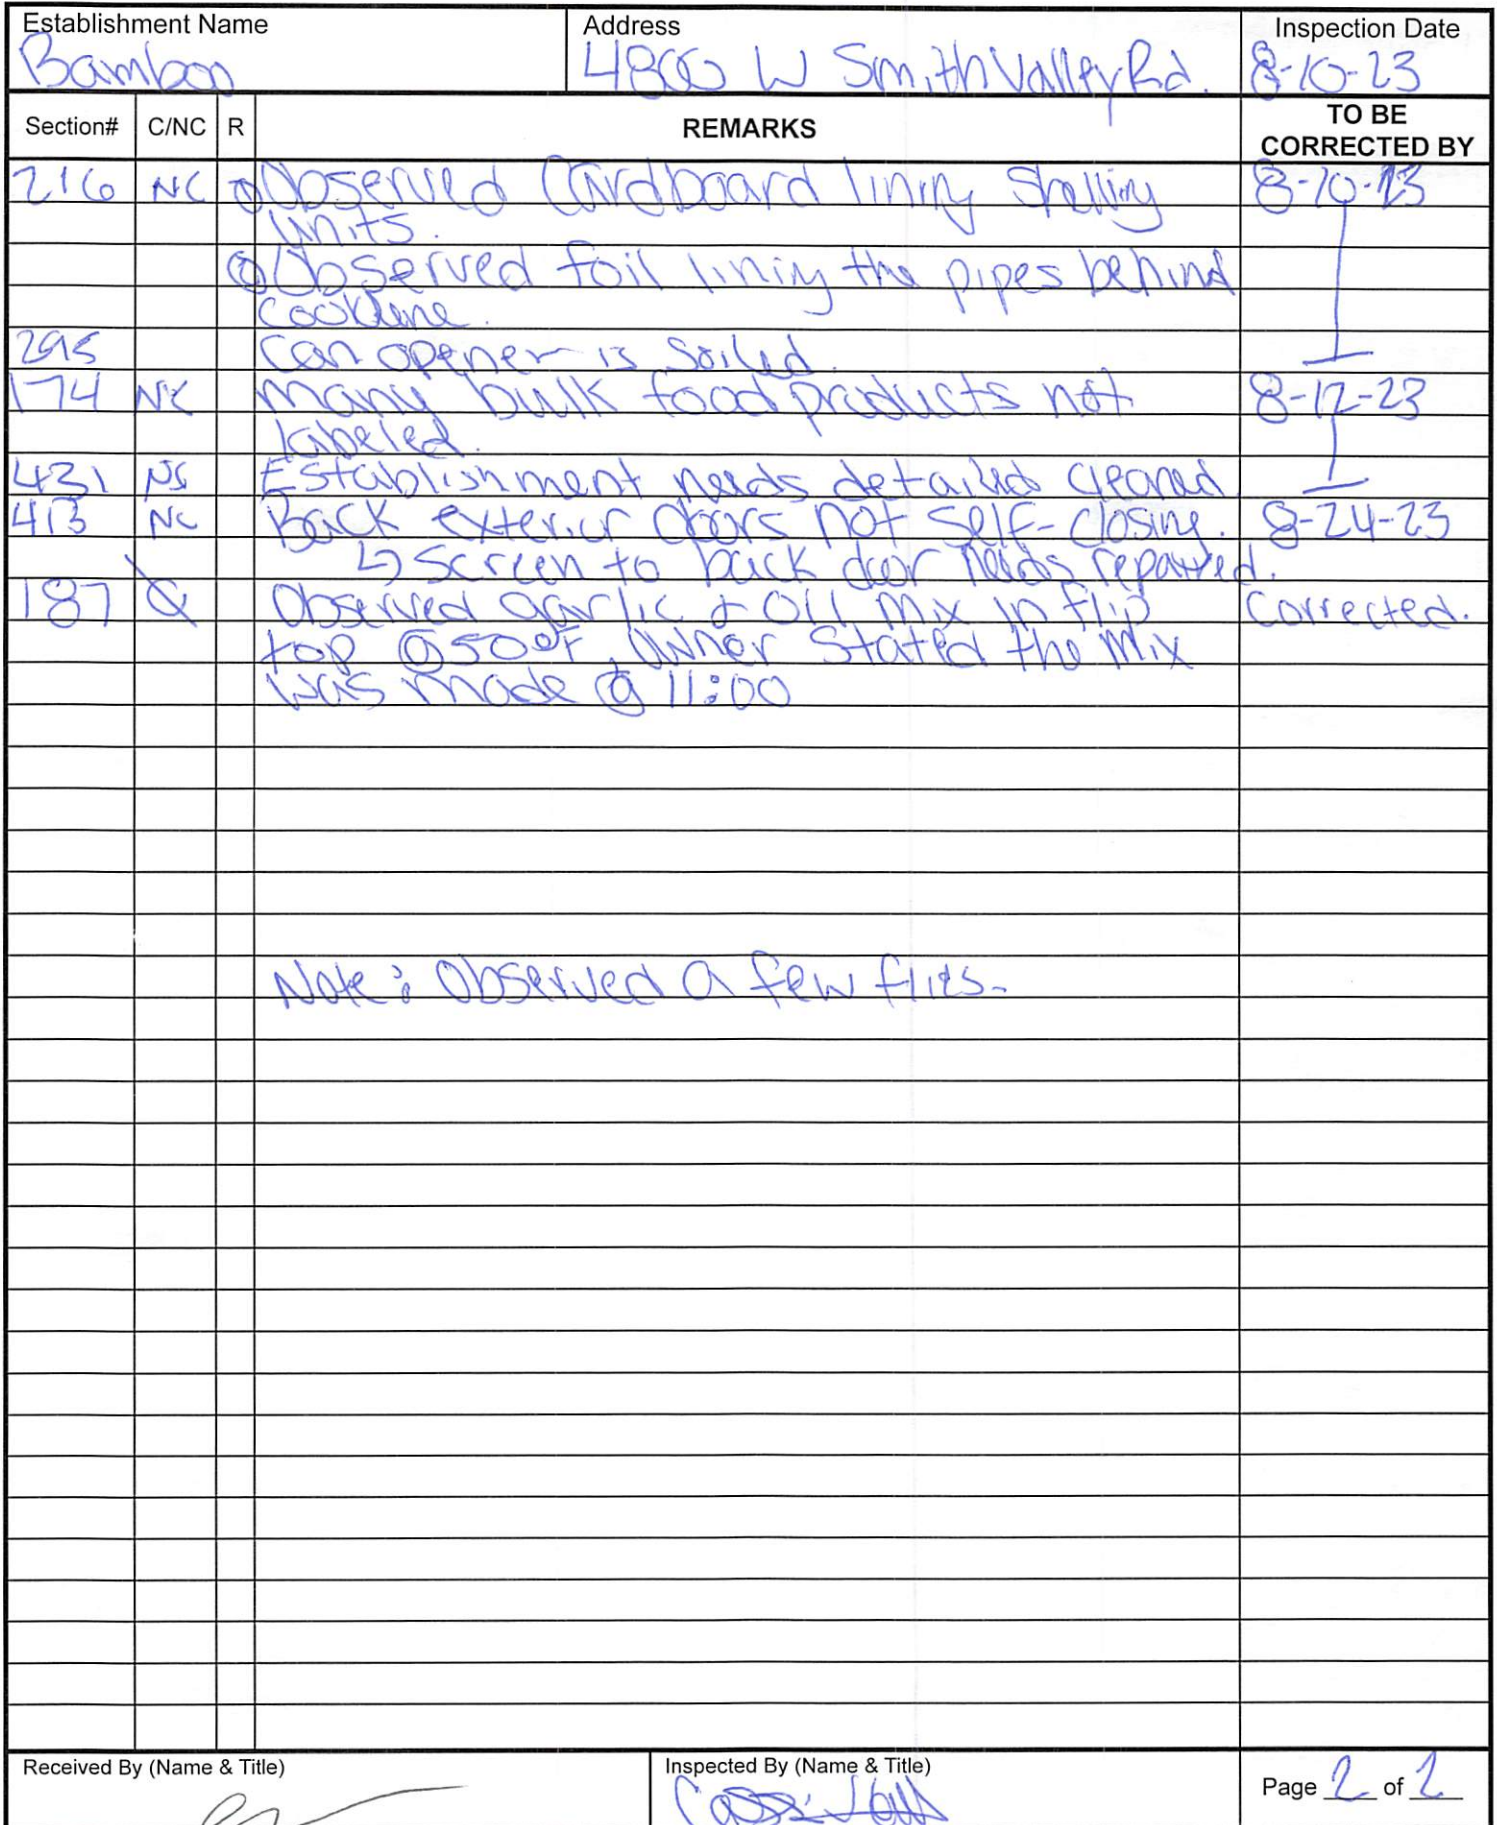 Establishment Name Address Inspection Date
Bamboo 4800 W Smith Valley Rd. 8-10-23
Section# C/NC R REMARKS TO BE CORRECTED BY
216 NC ① Observed Cardboard lining shelving 8-10-23
units.
② Observed foil lining the pipes behind
cookline.
295 Can opener is soiled.
174 NC Many bulk food products not 8-12-23
labeled.
431 NC Establishment needs detailed cleaned.
413 NC Back exterior doors not self-closing. 8-24-23
↳ Screen to back door needs repaired.
187 C Observed garlic & oil mix in flip Corrected.
top @ 50°F. Owner stated the mix
was made @ 11:00
Note: Observed a few flies.
Received By (Name & Title) Inspected By (Name & Title) Page 2 of 2